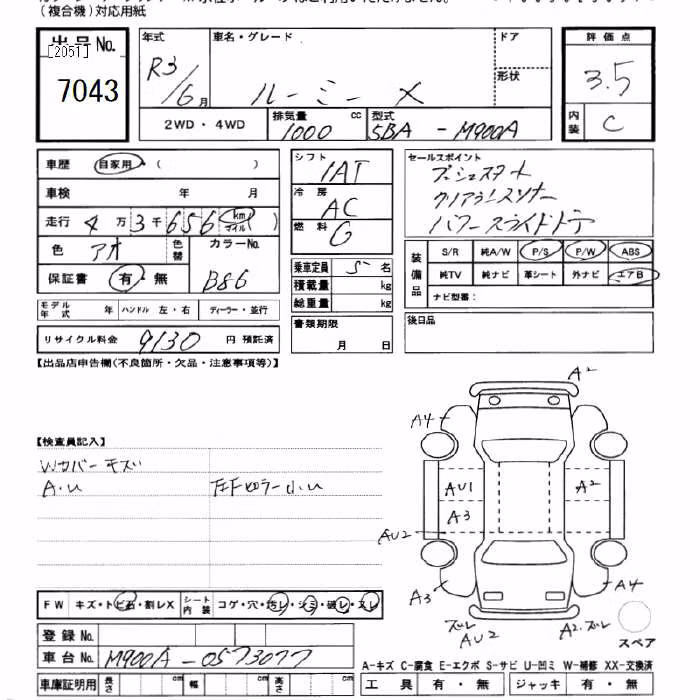 (複合機)対応用紙
出品No.
[2051]
7043
年式
R3/6月
車名・グレード
ルーミー X
ドア
形状
2WD・4WD
排気量 1000 cc
型式 5BA - M900A
評価点
3.5
内装 C
車歴 自家用・( )
車検 年 月
走行 4万3千656 km マイル )
色 アオ 色替 カラーNo. B86
保証書 有・無
モデル年式 年 ハンドル 左・右 ディーラー・並行
リサイクル料金 9130 円 預託済
シフト IAT
冷房 AC
燃料 G
乗車定員 5 名
積載量 kg
総重量 kg
書類期限
月 日
セールスポイント
プッシュスタート
クリアランスソナー
パワースライドドア
装備品
S/R 純A/W P/S P/W ABS
純TV 純ナビ 革シート 外ナビ エアB
ナビ型番:
後日品
【出品店申告欄(不良箇所・欠品・注意事項等)】
【検査員記入】
Wカバーキズ
A・U
左Fピラー小U
FW キズ・トビ石・割レX シート内装 コゲ・穴・汚レ・シミ・破レ・スレ
登録No.
車台No. M900A-0573077
車庫証明用 長さ cm 幅 cm 高さ cm
A2
A4
AU1
A2
A3
AU2
A3
A4
ズレ
AU2
A2.ズレ
スペア
A-キズ C-腐食 E-エクボ S-サビ U-凹ミ W-補修 XX-交換済
工具 有・無 ジャッキ 有・無